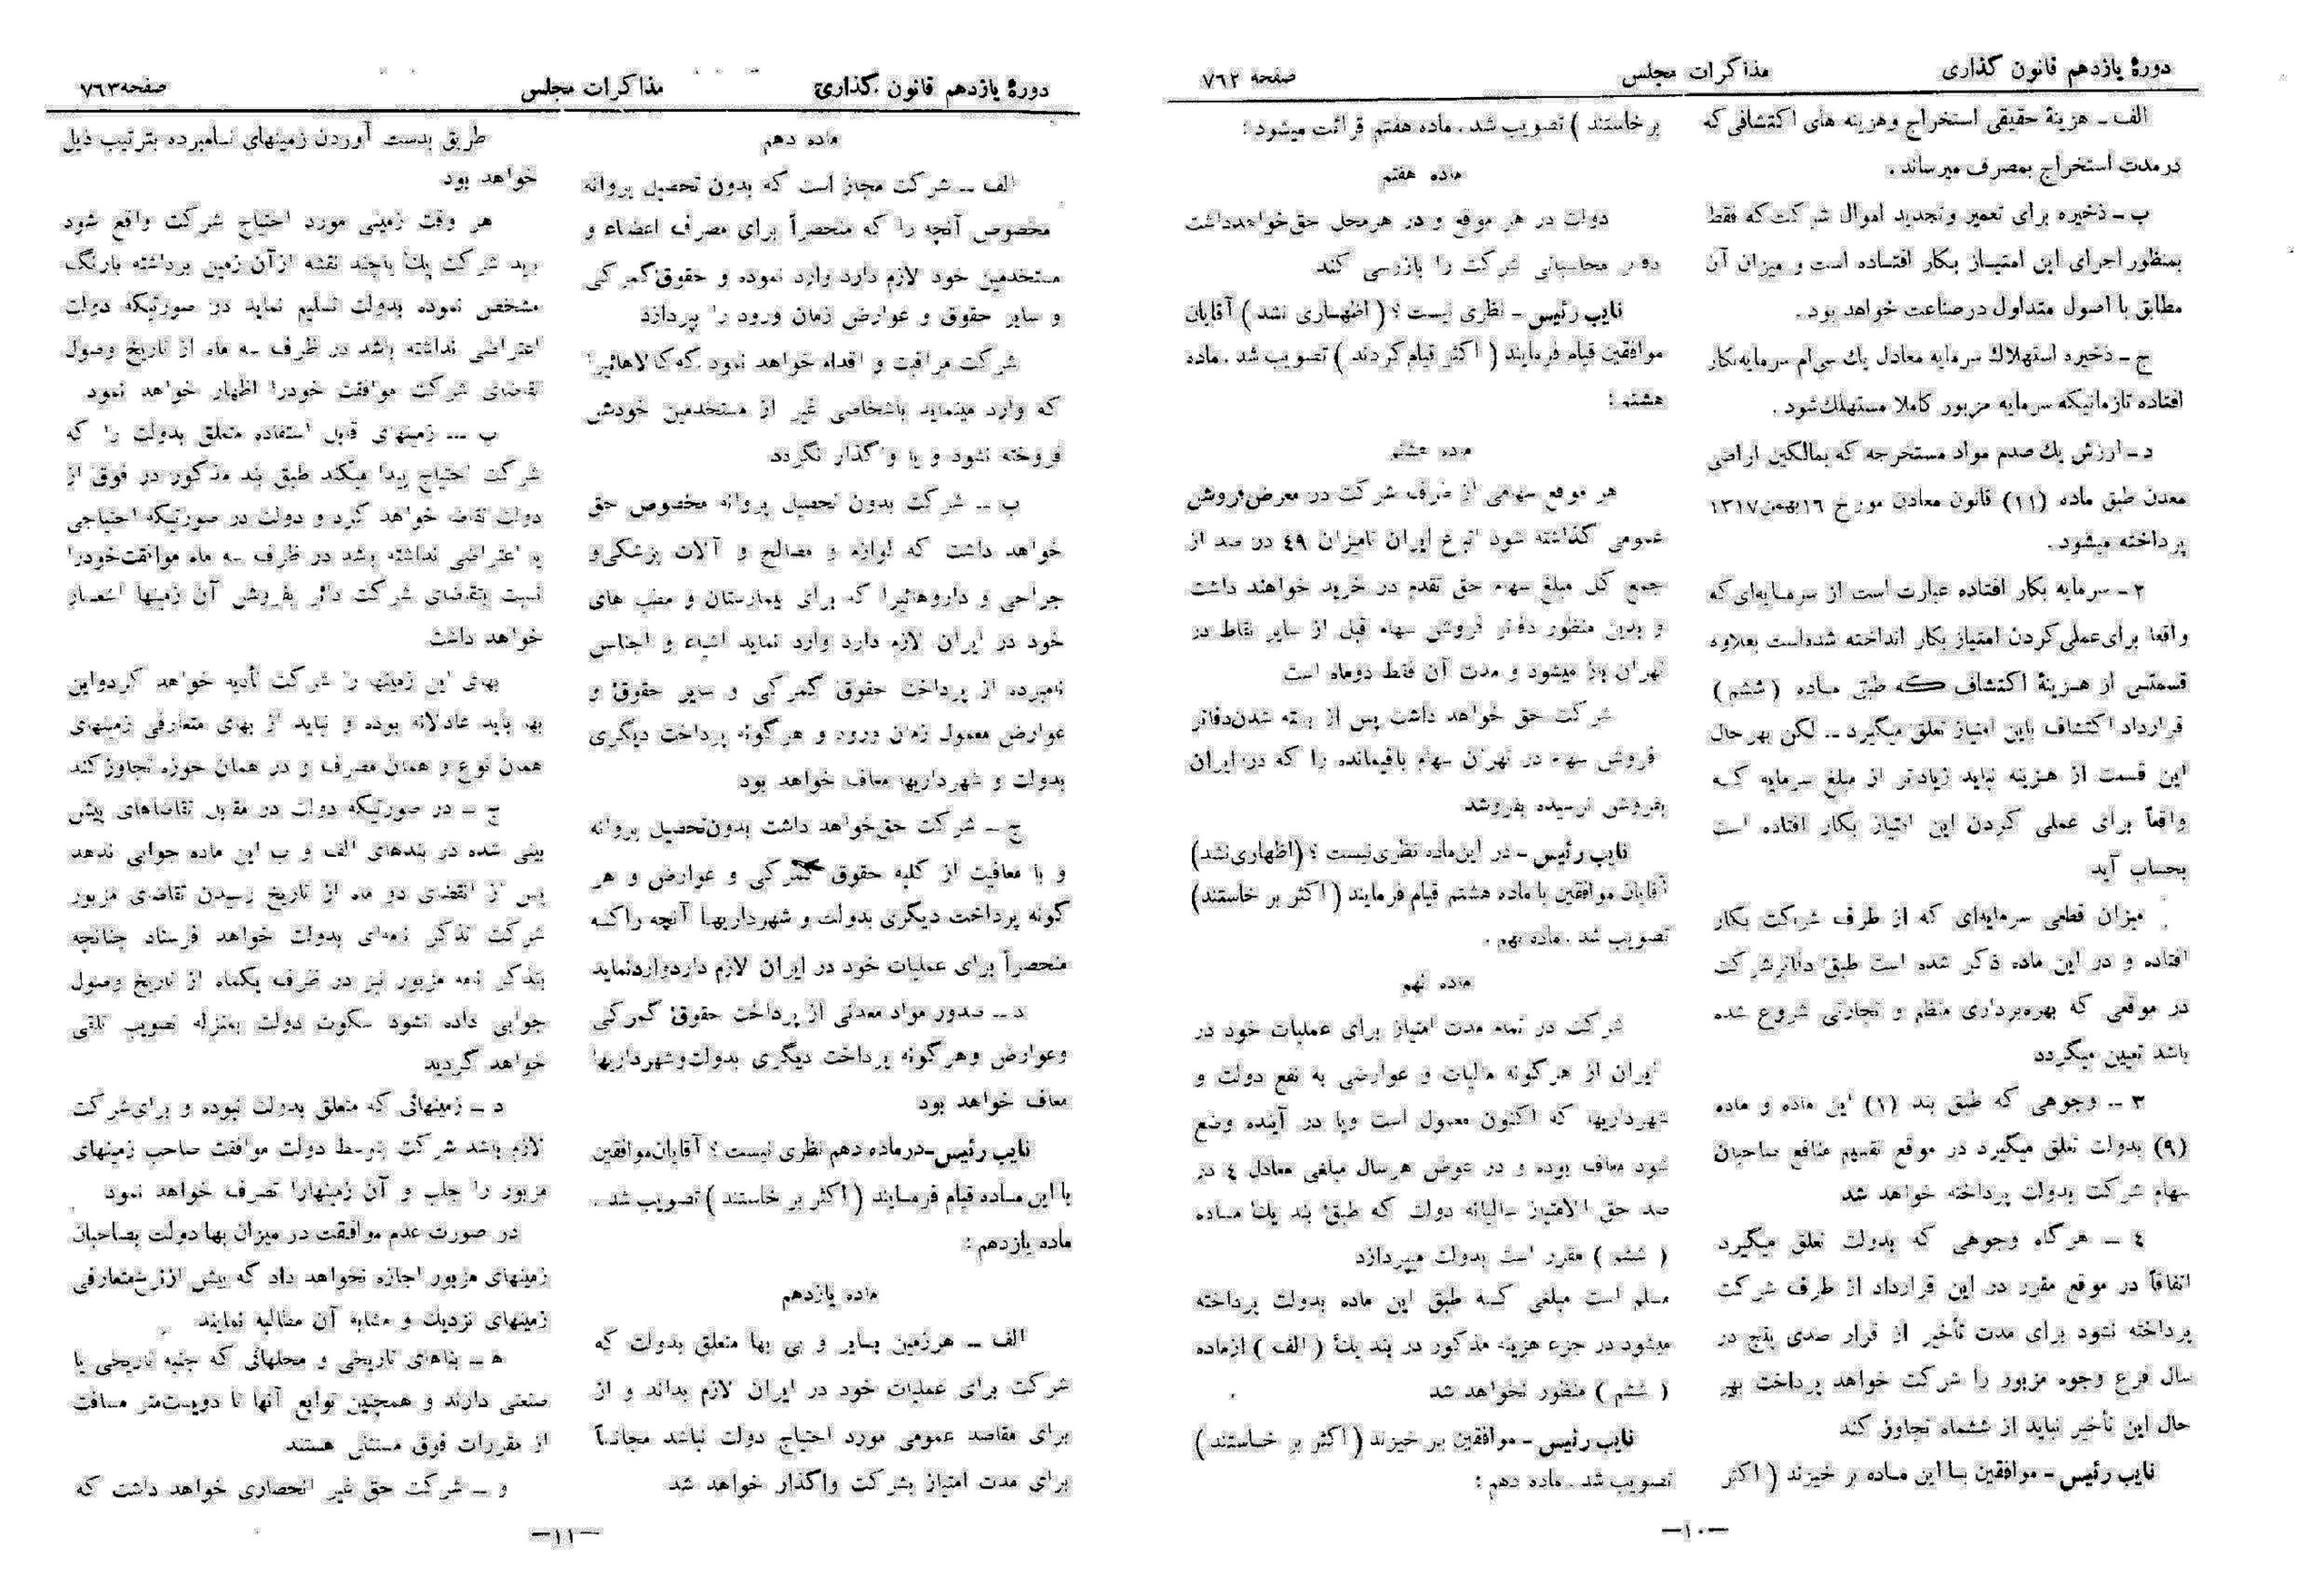 دورهٔ یازدهم قانون گذاری
مذاکرات مجلس
صفحه ۷۶۲
الف ــ هزینهٔ حقیقی استخراج وهزینه های اکتشافی که
درمدت استخراج بمصرف میرساند .
ب ــ ذخیره برای تعمیر وتجدید اموال شرکت که فقط
بمنظور اجرای این امتیـاز بکار افتـاده است و میزان آن
مطابق با اصول متداول درصناعت خواهد بود .
ج ــ ذخیره استهلاك سرمایه معادل یك سی‌ام سرمایه بکار
افتاده تازمانیکه سرمایه مزبور کاملا مستهلك شود .
د ــ ارزش یك صدم مواد مستخرجه که بمالکین اراضی
معدن طبق ماده (۱۱) قانون معادن مورخ ۱۶بهمن۱۳۱۷
پرداخته میشود.
۲ ــ سرمایه بکار افتاده عبارت است از سرمـایه‌ای که
واقعا برای عملی کردن امتیاز بکار انداخته شده‌است بعلاوه
قسمتی از هـزینهٔ اکتشاف کـه طبق مـاده ( ششم )
قرارداد اکتشاف باین امتیاز تعلق میگیرد ــ لکن بهرحال
این قسمت از هـزینه نباید زیادتر از مبلغ سرمایه کـه
واقعاً برای عملی کردن این امتیاز بکار افتاده است
بحساب آید
میزان قطعی سرمایه‌ای که از طرف شرکت بکار
افتاده و در این ماده ذکر شده است طبق دفاتر شرکت
در موقعی که بهره‌برداری منظم و تجارتی شروع شده
باشد تعیین میگردد
۳ ــ وجوهی که طبق بند (۱) این ماده و ماده
(۹) بدولت تعلق میگیرد در موقع تقسیم منافع صاحبان
سهام شرکت بدولت پرداخته خواهد شد
٤ ــ هرگاه وجوهی که بدولت تعلق میگیرد
اتفاقاً در موقع مقرر در این قرارداد از طرف شرکت
پرداخته نشود برای مدت تأخیر از قرار صدی پنج در
سال فرع وجوه مزبور را شرکت خواهد پرداخت بهر
حال این تأخیر نباید از ششماه تجاوز کند
نایب رئیس ــ موافقین بـا این مـاده بر خیزند ( اکثر
بر خاستند ) تصویب شد . ماده هفتم قرائت میشود :
ماده هفتم
دولت در هر موقع و در هرمحل حق خواهدداشت
دفاتر محاسباتی شرکت را بازرسی کند
نایب رئیس ــ نظری نیست ؟ ( اظهـاری نشد ) آقایان
موافقین قیام فرمایند ( اکثر قیام کردند ) تصویب شد . ماده
هشتم :
ماده هشتم
هر موقع سهامی از طرف شرکت در معرض فروش
عمومی گذاشته شود اتباع ایران تامیزان ٤۹ در صد از
جمع کل مبلغ سهام حق تقدم در خرید خواهند داشت
و بدین منظور دفاتر فروش سهام قبل از سایر نقاط در
تهران باز میشود و مدت آن فقط دوماه است
شرکت حق خواهد داشت پس از بسته شدن دفاتر
فروش سهام در تهران سهام باقیمانده را که در ایران
بفروش نرسیده بفروشد
نایب رئیس ــ در این ماده نظری نیست ؟ (اظهاری نشد)
آقایان موافقین با ماده هشتم قیام فرمایند ( اکثر بر خاستند)
تصویب شد . ماده نهم .
ماده نهم
شرکت در تمام مدت امتیاز برای عملیات خود در
ایران از هرگونه مالیات و عوارضی به نفع دولت و
شهرداریها که اکنون معمول است ویا در آینده وضع
شود معاف بوده و در عوض هرسال مبلغی معادل ٤ در
صد حق الامتیاز سالیانه دولت که طبق بند یك مـاده
( ششم ) مقرر است بدولت میپردازد
مسلم است مبلغی کـه طبق این ماده بدولت پرداخته
میشود در جزء هزینه مذکور در بند یك ( الف ) ازماده
( ششم ) منظور نخواهد شد
نایب رئیس ــ موافقین بر خیزند ( اکثر بر خـاستند )
تصویب شد . ماده دهم :
ــ۱۰ــ
دورهٔ یازدهم قانون گذاری
مذاکرات مجلس
صفحه۷۶۳
ماده دهم
الف ــ شرکت مجاز است که بدون تحصیل پروانه
مخصوص آنچه را که منحصراً برای مصرف اعضاء و
مستخدمین خود لازم دارد وارد نموده و حقوق گمرکی
و سایر حقوق و عوارض زمان ورود را بپردازد
شرکت مراقبت و اقدام خواهد نمود که کالاهائیرا
که وارد مینماید باشخاصی غیر از مستخدمین خودش
فروخته نشود و یا واگذار نگردد
ب ــ شرکت بدون تحصیل پروانه مخصوص حق
خواهد داشت که لوازم و مصالح و آلات پزشکی و
جراحی و داروهائیرا که برای بیمارستان و مطب های
خود در ایران لازم دارد وارد نماید اشیاء و اجناس
نامبرده از پرداخت حقوق گمرکی و سایر حقوق و
عوارض معمول زمان ورود و هرگونه پرداخت دیگری
بدولت و شهرداریها معاف خواهد بود
ج ــ شرکت حق خواهد داشت بدون تحصیل پروانه
و با معافیت از کلیه حقوق گمرکی و عوارض و هر
گونه پرداخت دیگری بدولت و شهرداریهـا آنچه راکـه
منحصراً برای عملیات خود در ایران لازم داردواردنماید
د ــ صدور مواد معدنی از پرداخت حقوق گمرکی
وعوارض وهرگونه پرداخت دیگری بدولت‌وشهرداریها
معاف خواهد بود
نایب رئیس ــ درماده دهم نظری نیست ؟ آقایان‌موافقین
با این مـاده قیام فرمـایند ( اکثر بر خاستند ) تصویب شد .
ماده یازدهم :
ماده یازدهم
الف ــ هرزمین بـایر و بی بها متعلق بدولت که
شرکت برای عملیات خود در ایران لازم بداند و از
برای مقاصد عمومی مورد احتیاج دولت نباشد مجانـاً
برای مدت امتیاز بشرکت واگذار خواهد شد
طریق بدست آوردن زمینهای نـامبرده بترتیب ذیل
خواهد بود
هر وقت زمینی مورد احتیاج شرکت واقع شود
باید شرکت یك یاچند نقشه ازآن زمین برداشته بارنگ
مشخص نموده بدولت تسلیم نماید در صورتیکه دولت
اعتراضی نداشته باشد در ظرف سه ماه از تاریخ وصول
تقاضای شرکت موافقت خودرا اظهار خواهد نمود
ب ــ زمینهای قابل استفاده متعلق بدولت را که
شرکت احتیاج پیدا میکند طبق بند مذکور در فوق از
دولت تقاضا خواهد کرد و دولت در صورتیکه احتیاجی
یا اعتراضی نداشته باشد در ظرف سه ماه موافقت‌خودرا
نسبت بتقاضای شرکت دائر بفروش آن زمینها اشعـار
خواهد داشت
بهای این زمینها را شرکت تأدیه خواهد کردواین
بها باید عادلانه بوده و نباید از بهای متعارفی زمینهای
همان نوع و همان مصرف و در همان حوزه تجاوز کند
ج ــ در صورتیکه دولت در مقابل تقاضاهای پیش
بینی شده در بندهای الف و ب این ماده جوابی ندهد
پس از انقضای دو ماه از تاریخ رسیدن تقاضای مزبور
شرکت تذکر نامه‌ای بدولت خواهد فرستاد چنانچه
بتذکر نامه مزبور نیز در ظرف یکماه از تاریخ وصول
جوابی داده نشود سکوت دولت بمنزله تصویب تلقی
خواهد گردید
د ــ زمینهائی که متعلق بدولت نبوده و برای شرکت
لازم باشد شرکت بتوسط دولت موافقت صاحب زمینهای
مزبور را جلب و آن زمینهارا تصرف خواهد نمود
در صورت عدم موافقت در میزان بها دولت بصاحبان
زمینهای مزبور اجازه نخواهد داد که بیش ازنرخ‌متعارفی
زمینهای نزدیك و مشابه آن مطالبه نمایند
ه ــ بناهای تاریخی و محلهائی که جنبه تاریخی یا
صنعتی دارند و همچنین توابع آنها تا دویست‌متر مسافت
از مقررات فوق مستثنی هستند
و ــ شرکت حق غیر انحصاری خواهد داشت که
ــ۱۱ــ